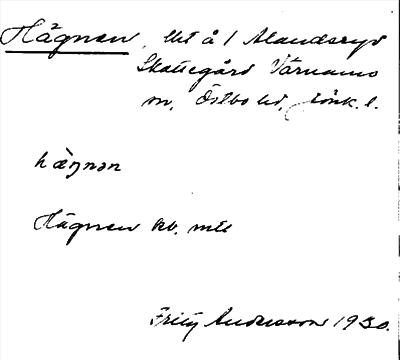 Hägnen, Ut å / Alandsryd
Skattegård Värnamo
sn, Östbo hd, Jönk. l.
hæŋnən
Hägnen kb. mtl
Fritz Andersson 1930.